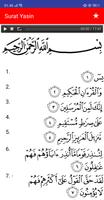 Surat Yasin
بِسْمِ اللَّهِ الرَّحْمَٰنِ الرَّحِيمِ
1. يسٓ ۝١
2. وَالْقُرْآنِ الْحَكِيمِ ۝٢
3. إِنَّكَ لَمِنَ الْمُرْسَلِينَ ۝٣
4. عَلَىٰ صِرَاطٍ مُّسْتَقِيمٍ ۝٤
5. تَنزِيلَ الْعَزِيزِ الرَّحِيمِ ۝٥
6. لِتُنذِرَ قَوْمًا مَّا أُنذِرَ آبَاؤُهُمْ فَهُمْ
غَافِلُونَ ۝٦
7. لَقَدْ حَقَّ الْقَوْلُ عَلَىٰ أَكْثَرِهِمْ فَهُمْ